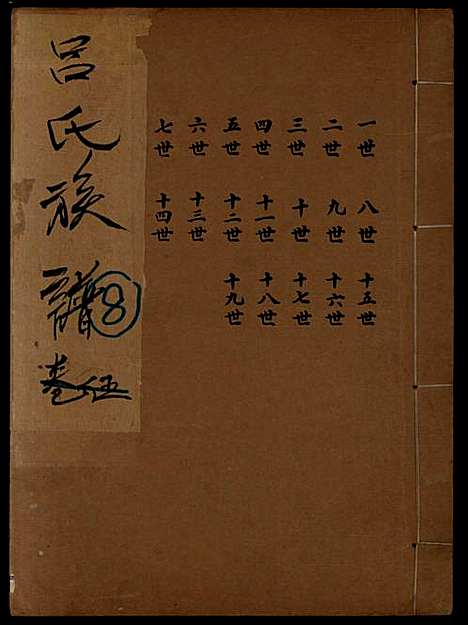 一世 八世 十五世
二世 九世 十六世
三世 十世 十七世
四世 十一世 十八世
五世 十二世 十九世
六世 十三世
七世 十四世
呂氏族譜 8
卷伍